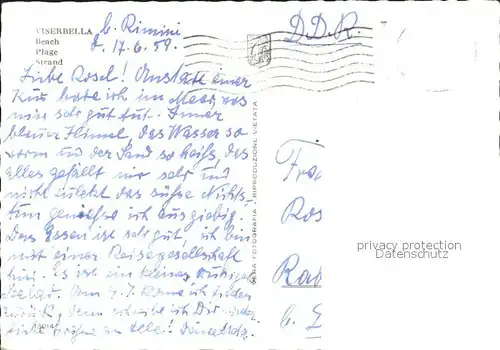 VISERBELLA
Beach
Plage
Strand
b. Rimini
d. 17.6.59.
D.D.R.
Liebe Rosel! Anstatt einer
Kur bade ich im Meer, was
mir sehr gut tut. Immer
blauer Himmel, das Wasser so
warm und der Sand so heiß, das
alles gefällt mir sehr und
nicht zuletzt das süße Nichts-
tun genieße ich ausgiebig.
Das Essen ist sehr gut, ich bin
mit einer Reisegesellschaft
hier. Es ist ein kleines ruhiges
zurück, dann schreibe ich Dir
VERA FOTOGRAFIA - RIPRODUZIONE VIETATA
Fra
Ros
privacy protection
Datenschutz
Ra
b.